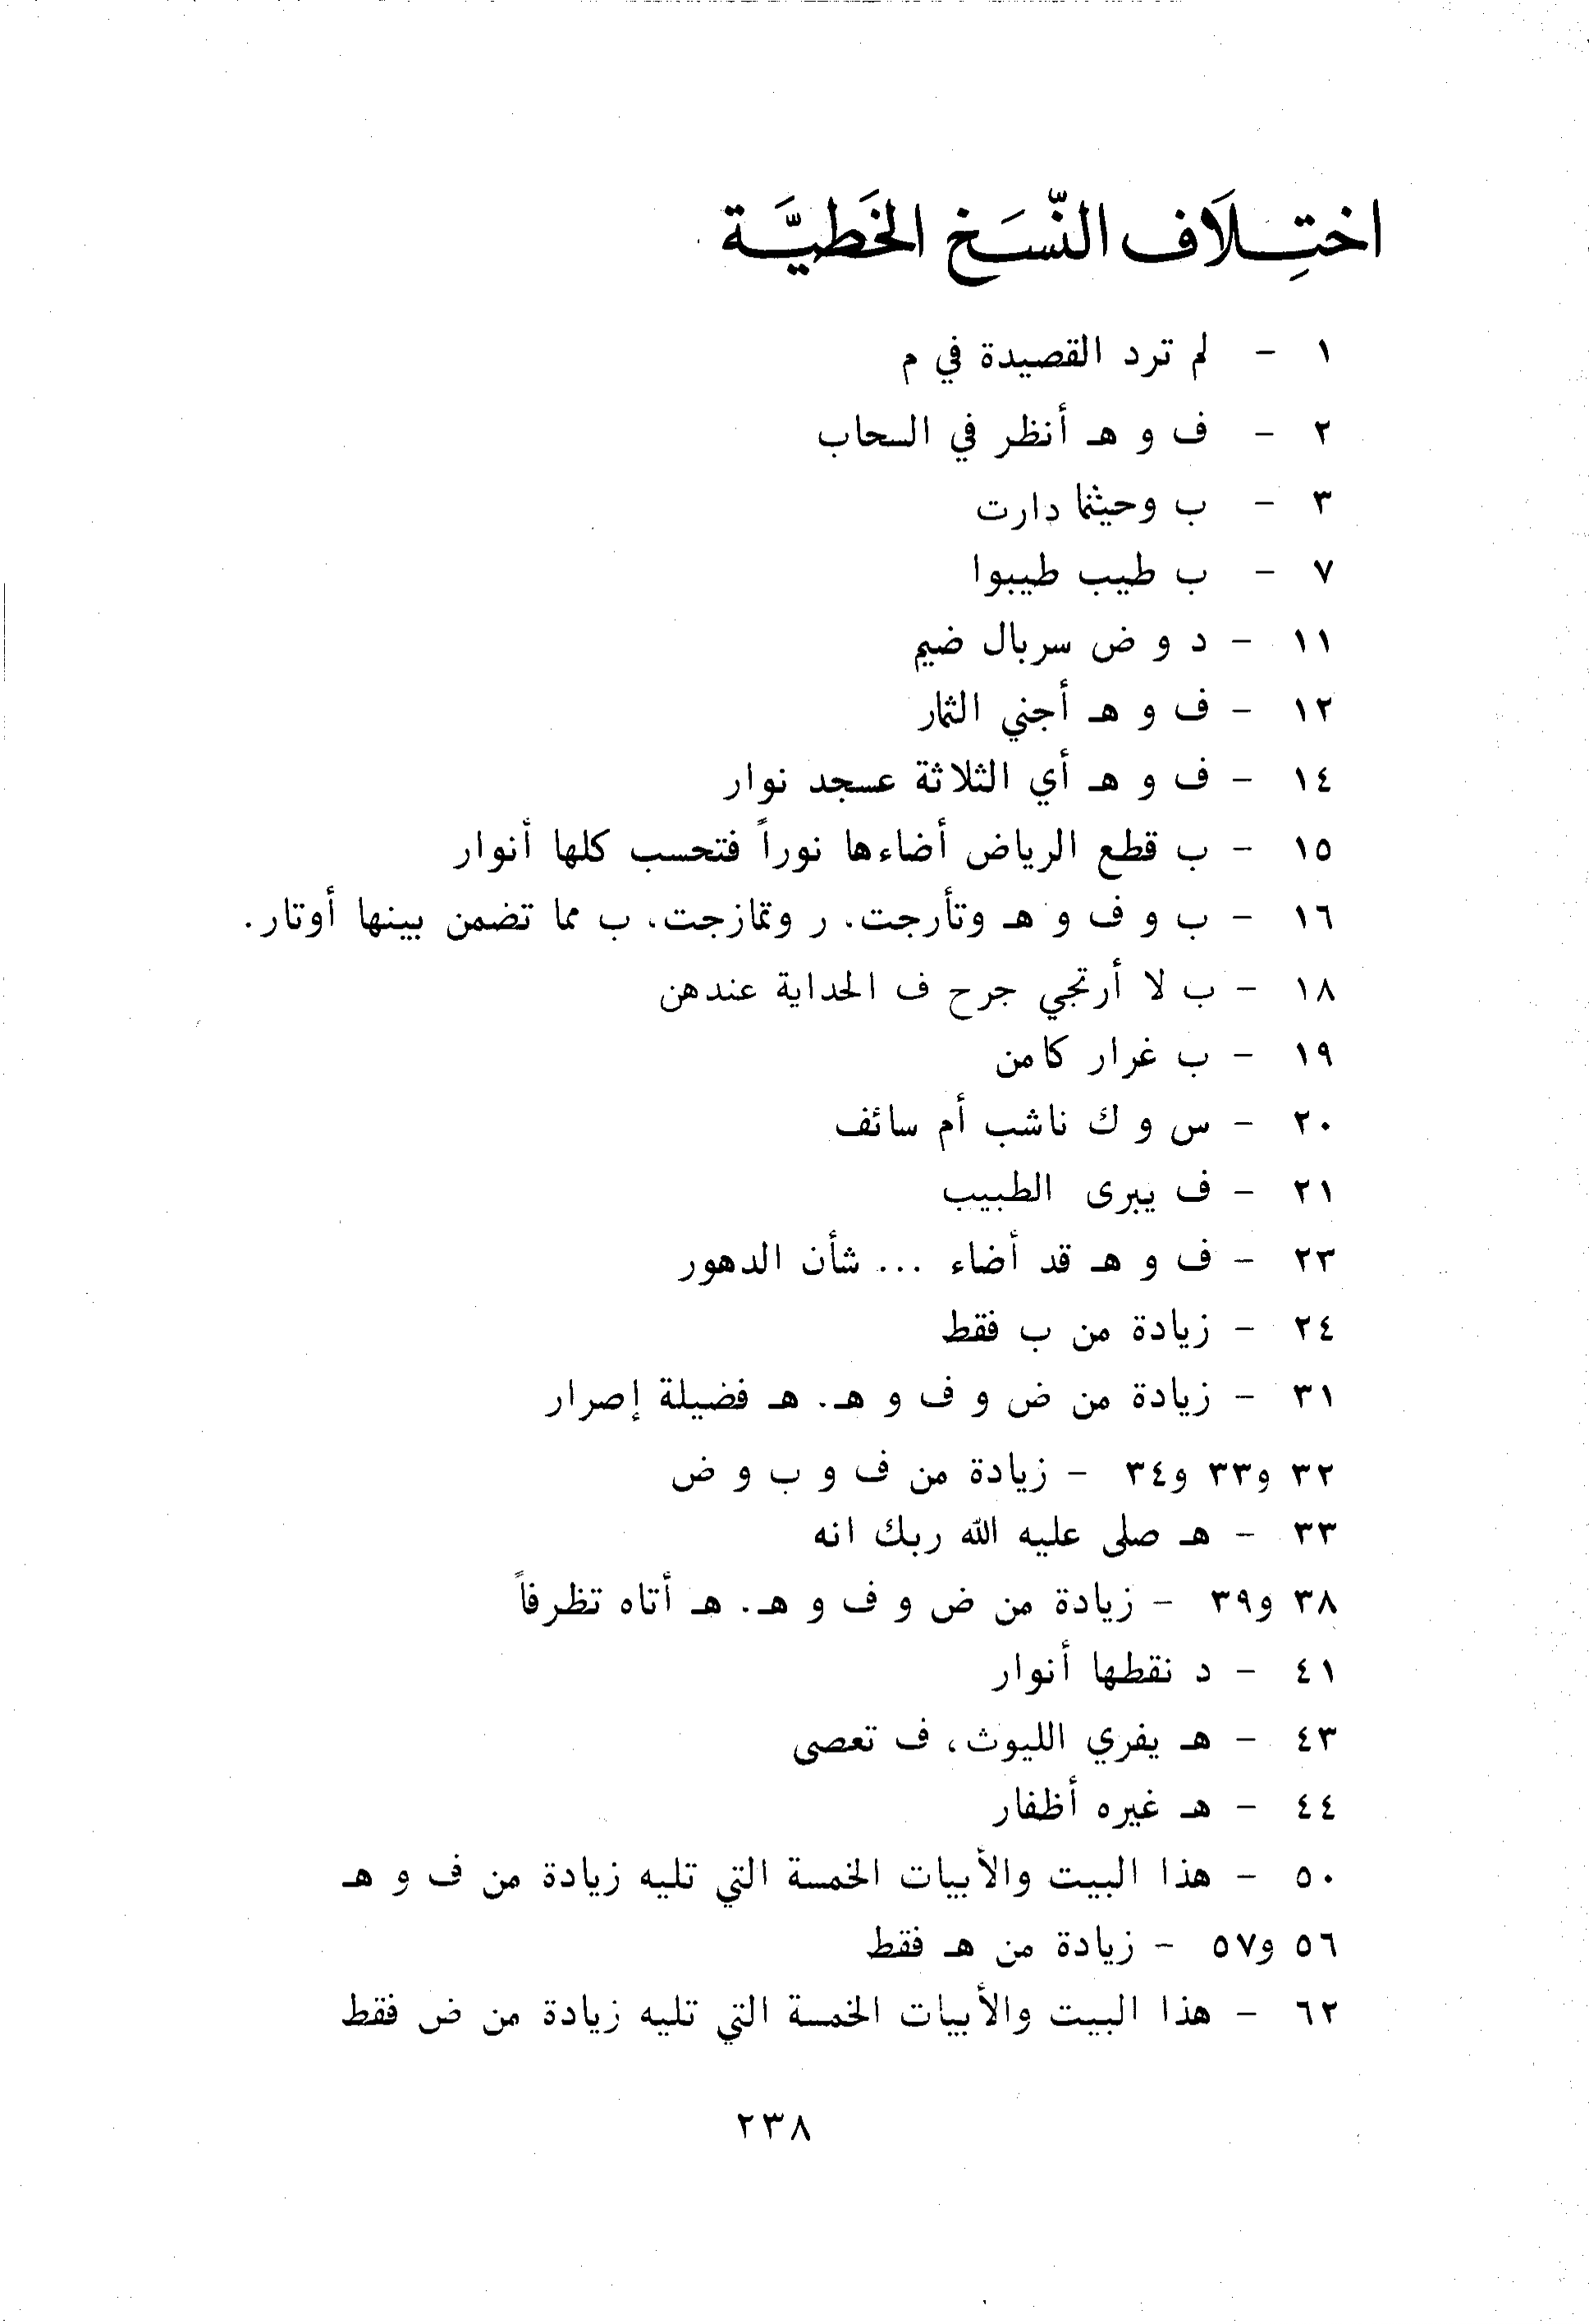 اختِلَاف النّسَخ الخَطيَّة
١ - لم ترد القصيدة في م
٢ - ف و هـ أنظر في السحاب
٣ - ب وحيثما دارت
٧ - ب طيب طيبوا
١١ - د و ض سربال ضيم
١٢ - ف و هـ أجني الثمار
١٤ - ف و هـ أي الثلاثة عسجد نوار
١٥ - ب قطع الرياض أضاءها نوراً فتحسب كلها أنوار
١٦ - ب و ف و هـ وتأرجت. ر وتمازجت. ب مما تضمن بينها أوتار.
١٨ - ب لا أرتجي جرح ف الحداية عندهن
١٩ - ب غرار كامن
٢٠ - س و ك ناشب أم سائف
٢١ - ف يبرى الطبيب
٢٣ - ف و هـ قد أضاء ... شأن الدهور
٢٤ - زيادة من ب فقط
٣١ - زيادة من ض و ف و هـ. هـ فضيلة إصرار
٣٢ و٣٣ و٣٤ - زيادة من ف و ب و ض
٣٣ - هـ صلى عليه الله ربك انه
٣٨ و٣٩ - زيادة من ض و ف و هـ. هـ أتاه تظرفاً
٤١ - د نقطها أنوار
٤٣ - هـ يفري الليوث، ف تعصى
٤٤ - هـ غيره أظفار
٥٠ - هذا البيت والأبيات الخمسة التي تليه زيادة من ف و هـ
٥٦ و٥٧ - زيادة من هـ فقط
٦٢ - هذا البيت والأبيات الخمسة التي تليه زيادة من ض فقط
٢٣٨